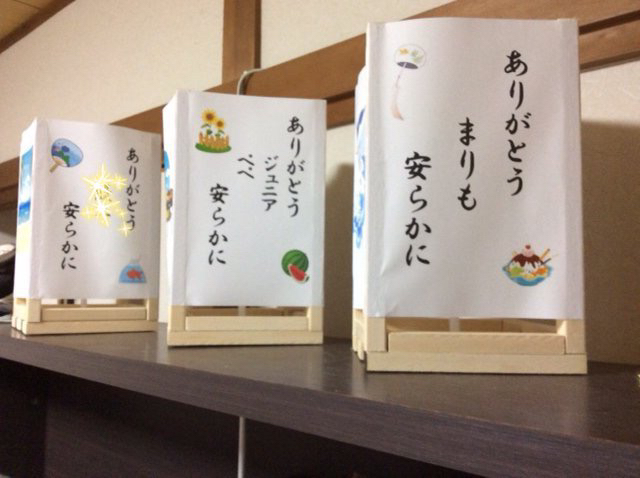 ありがとう
まりも
安らかに
ありがとう
ジュニア
ペペ
安らかに
ありがとう
安らかに